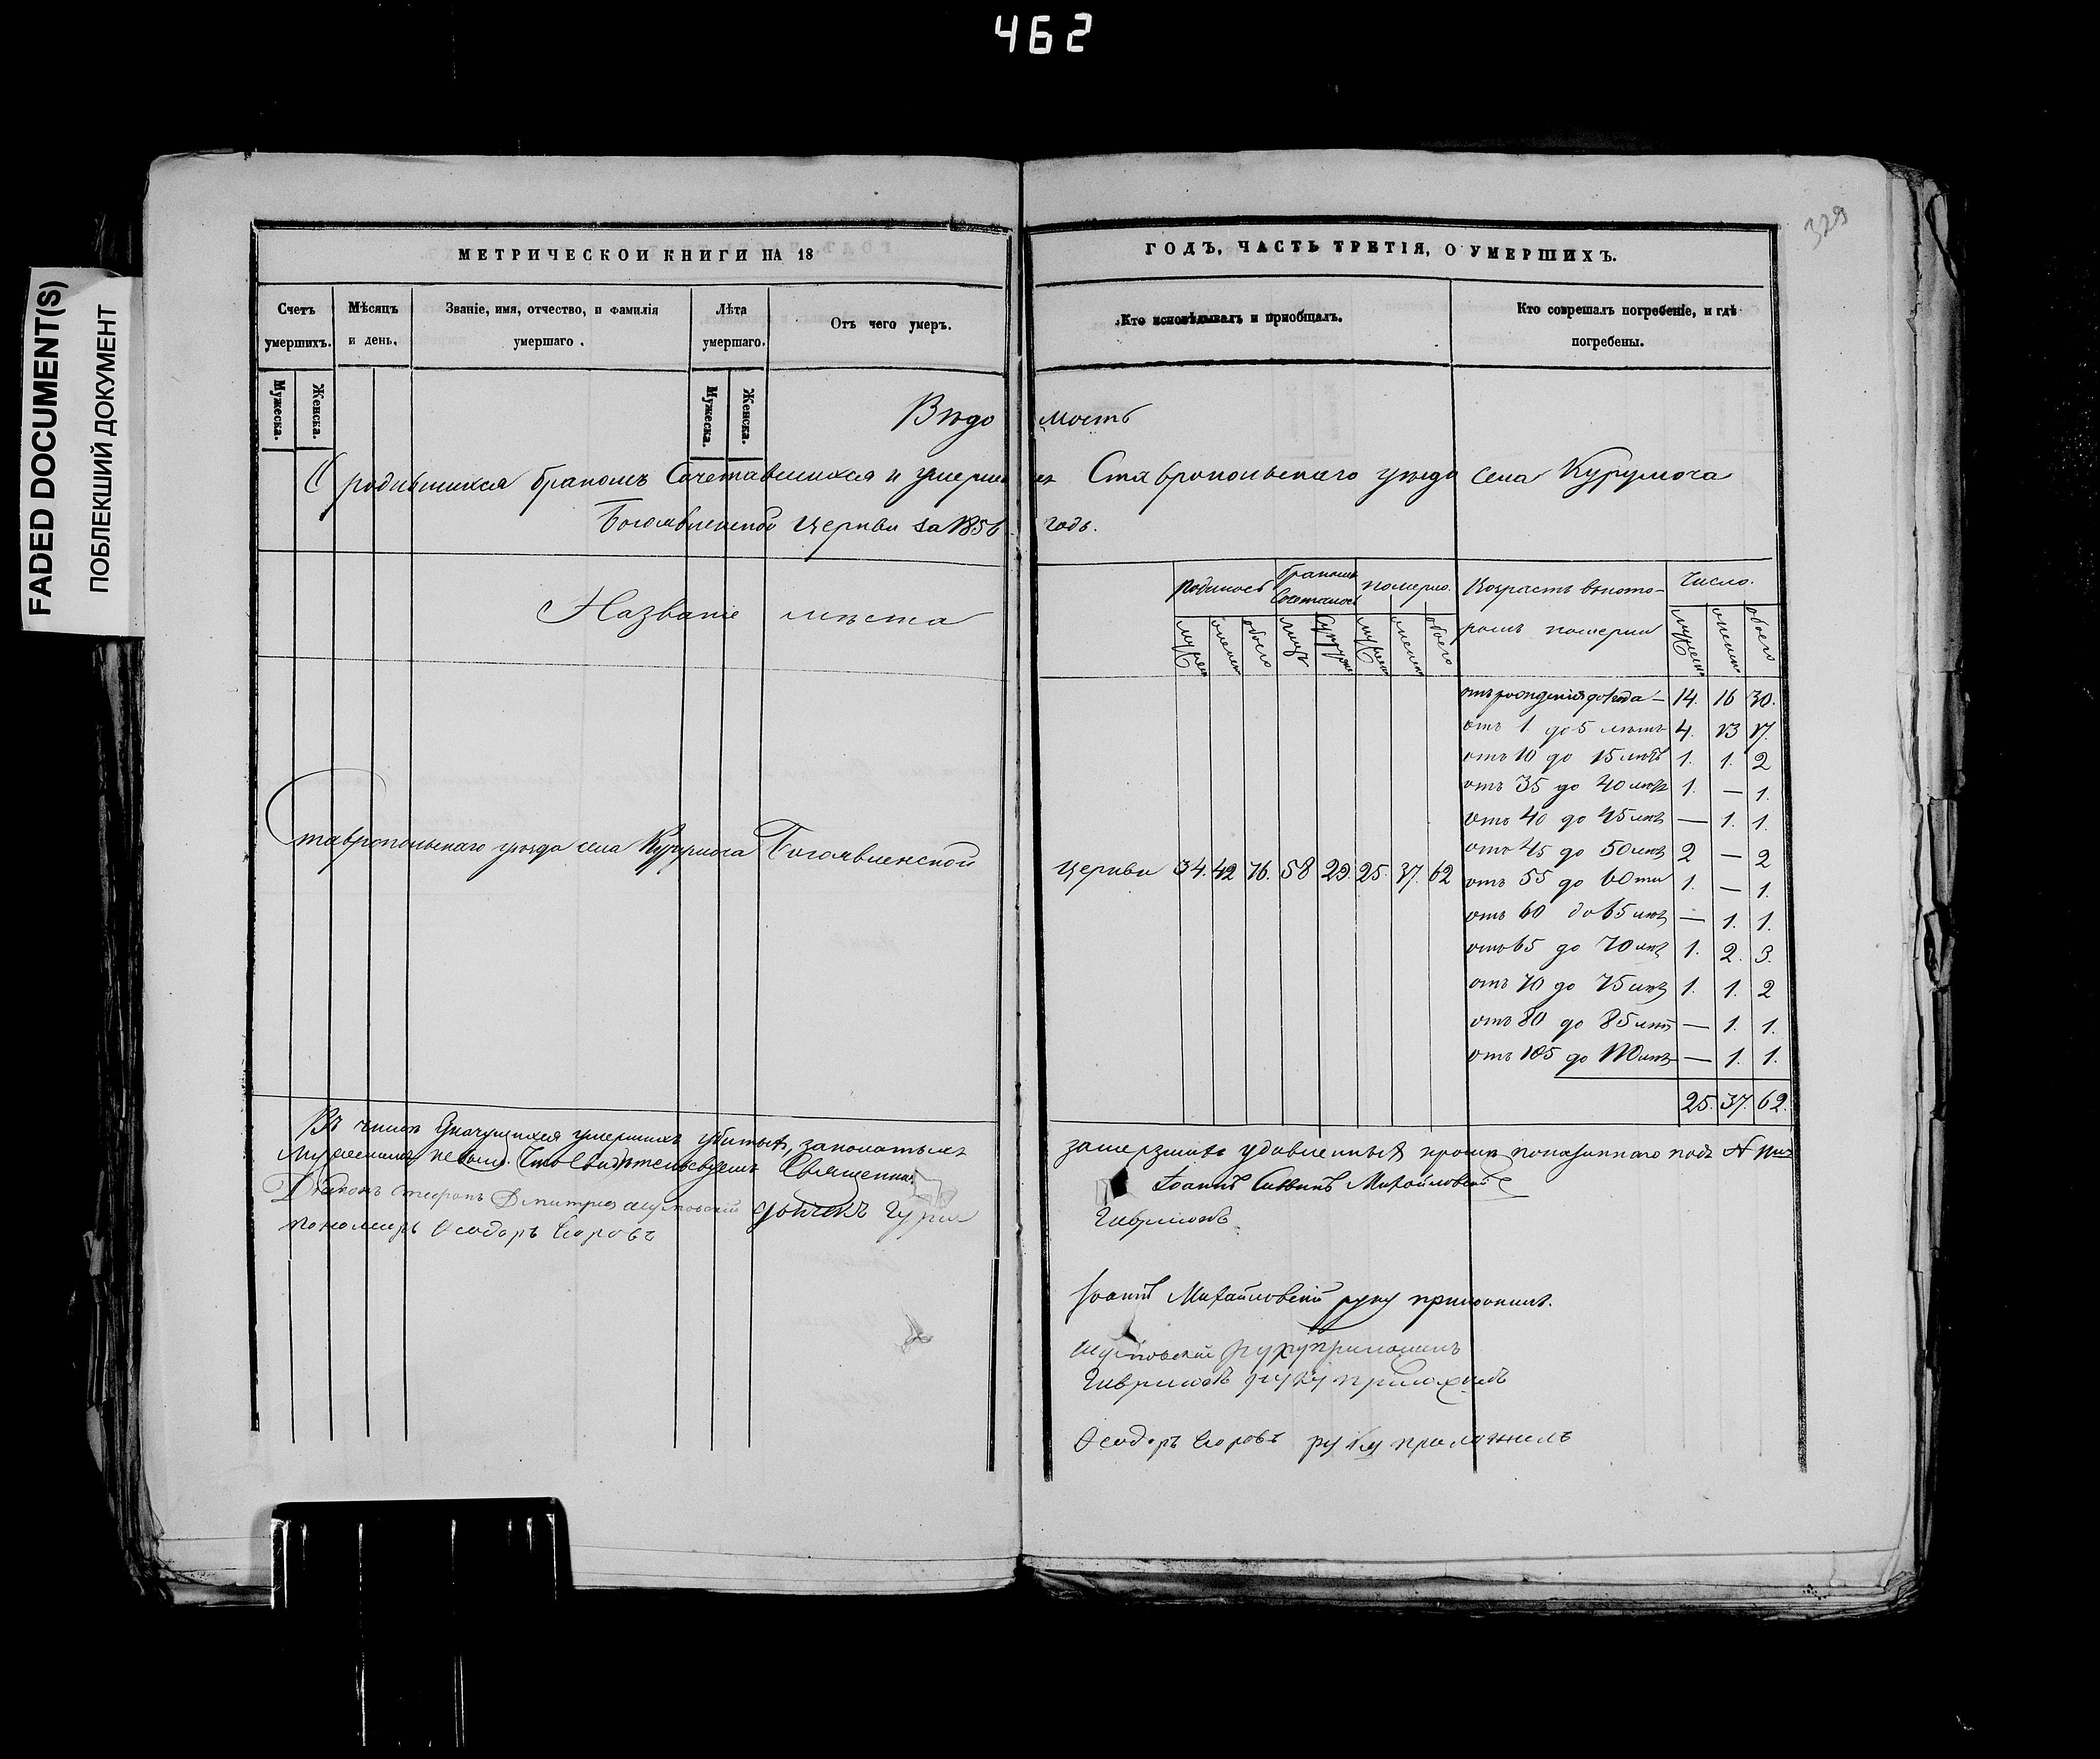 462
329
FADED DOCUMENT(S)
ПОБЛЕКШИЙ ДОКУМЕНТ
МЕТРИЧЕСКОИ КНИГИ НА 18 ГОДЪ, ЧАСТЬ ТРЕТІЯ, О УМЕРШИХЪ.
Счетъ умершихъ. Мѣсяцъ и день. Званіе, имя, отчество, и фамилія умершаго. Лѣта умершаго. Отъ чего умеръ. Кто исповѣдывалъ и приобщалъ. Кто совршалъ погребеніе, и гдѣ погребены.
Мужеска. Женска. Мужеска. Женска.
Вѣдомость
О родившихся бракомъ Сочетавшихся и умерших Ставропольскаго уѣзда села Курумоча
Богоявленской Церкви за 1856 годъ.
Названіе мѣста
Родилось бракомъ Сочеталось померло. Возрастъ въ кото- Число.
ромъ померли
обоего обоего обоего
отъ рожденія до 1 года — 14. 16 30.
отъ 1 до 5 лѣтъ 4. 13 17.
отъ 10 до 15 лѣтъ 1. 1. 2
отъ 35 до 40 лѣтъ 1. — 1.
отъ 40 до 45 лѣтъ — 1. 1.
отъ 45 до 50 лѣтъ 2 — 2
Ставропольскаго уѣзда села Курумоча Богоявленской Церкви 34. 42 76. 58 29. 25. 37. 62
отъ 55 до 60 ти 1. — 1.
отъ 60 до 65 лѣтъ — 1. 1.
отъ 65 до 70 лѣтъ 1. 2. 3.
отъ 70 до 75 лѣтъ 1. 1. 2
отъ 80 до 85 лѣтъ — 1. 1.
отъ 105 до 110 лѣтъ — 1. 1.
25. 37. 62.
Въ числѣ значущихся умершихъ убитыхъ, замерзшихъ удавленныхъ кромѣ показаннаго подъ №
небыло. Что Свидѣтельсвуемъ Священникъ Іоаннъ Михайловскій
Діаконъ Дьячекъ Гурій Гавриловъ
пономарь Ѳеодоръ
Іоаннъ Михайловскій руку приложилъ.
руку приложилъ
Гавриловъ руку приложилъ
Ѳеодоръ руку приложилъ